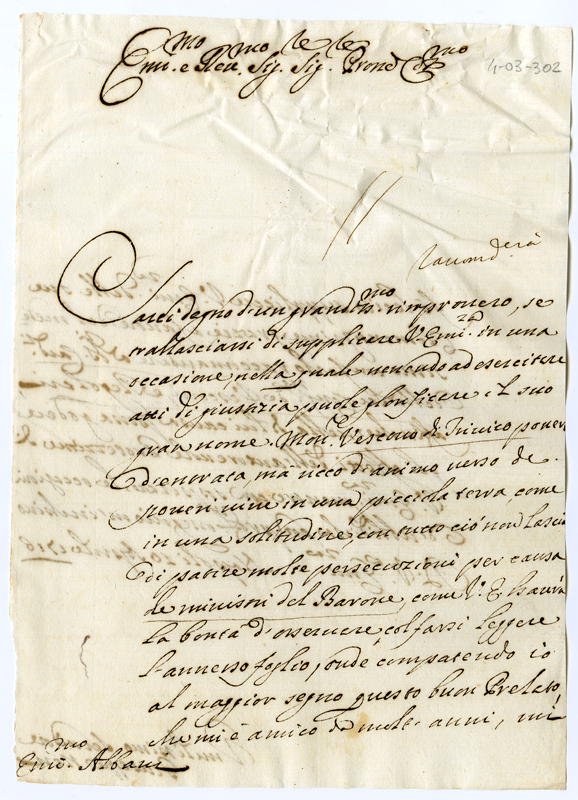 Em.mo e Rev.mo Sig.re Sig.re Pron.e Col.mo
4-03-302
raccom.derà
Sarei degno d'un grand.mo rimprovero, se
tralasciassi di supplicare V. Emi.za in una
occasione nella quale venendo ad esercitare
atti di giustizia puole glorificare il suo
gran nome. Mon.re Vescovo di Trivico povero
d'entrata, mà ricco di animo verso de
poveri vive in una picciola terra, come
in una solitudine, con tutto ciò non lascia
di patire molte persecuzioni per causa
de ministri del Barone, come V. E. haurà
la bontà d'osservare, col farsi leggere
l'annesso foglio, onde compatendo io
al maggior segno questo buon Prelato,
che mi è amico di molt'anni, mi
Em.mo Albani